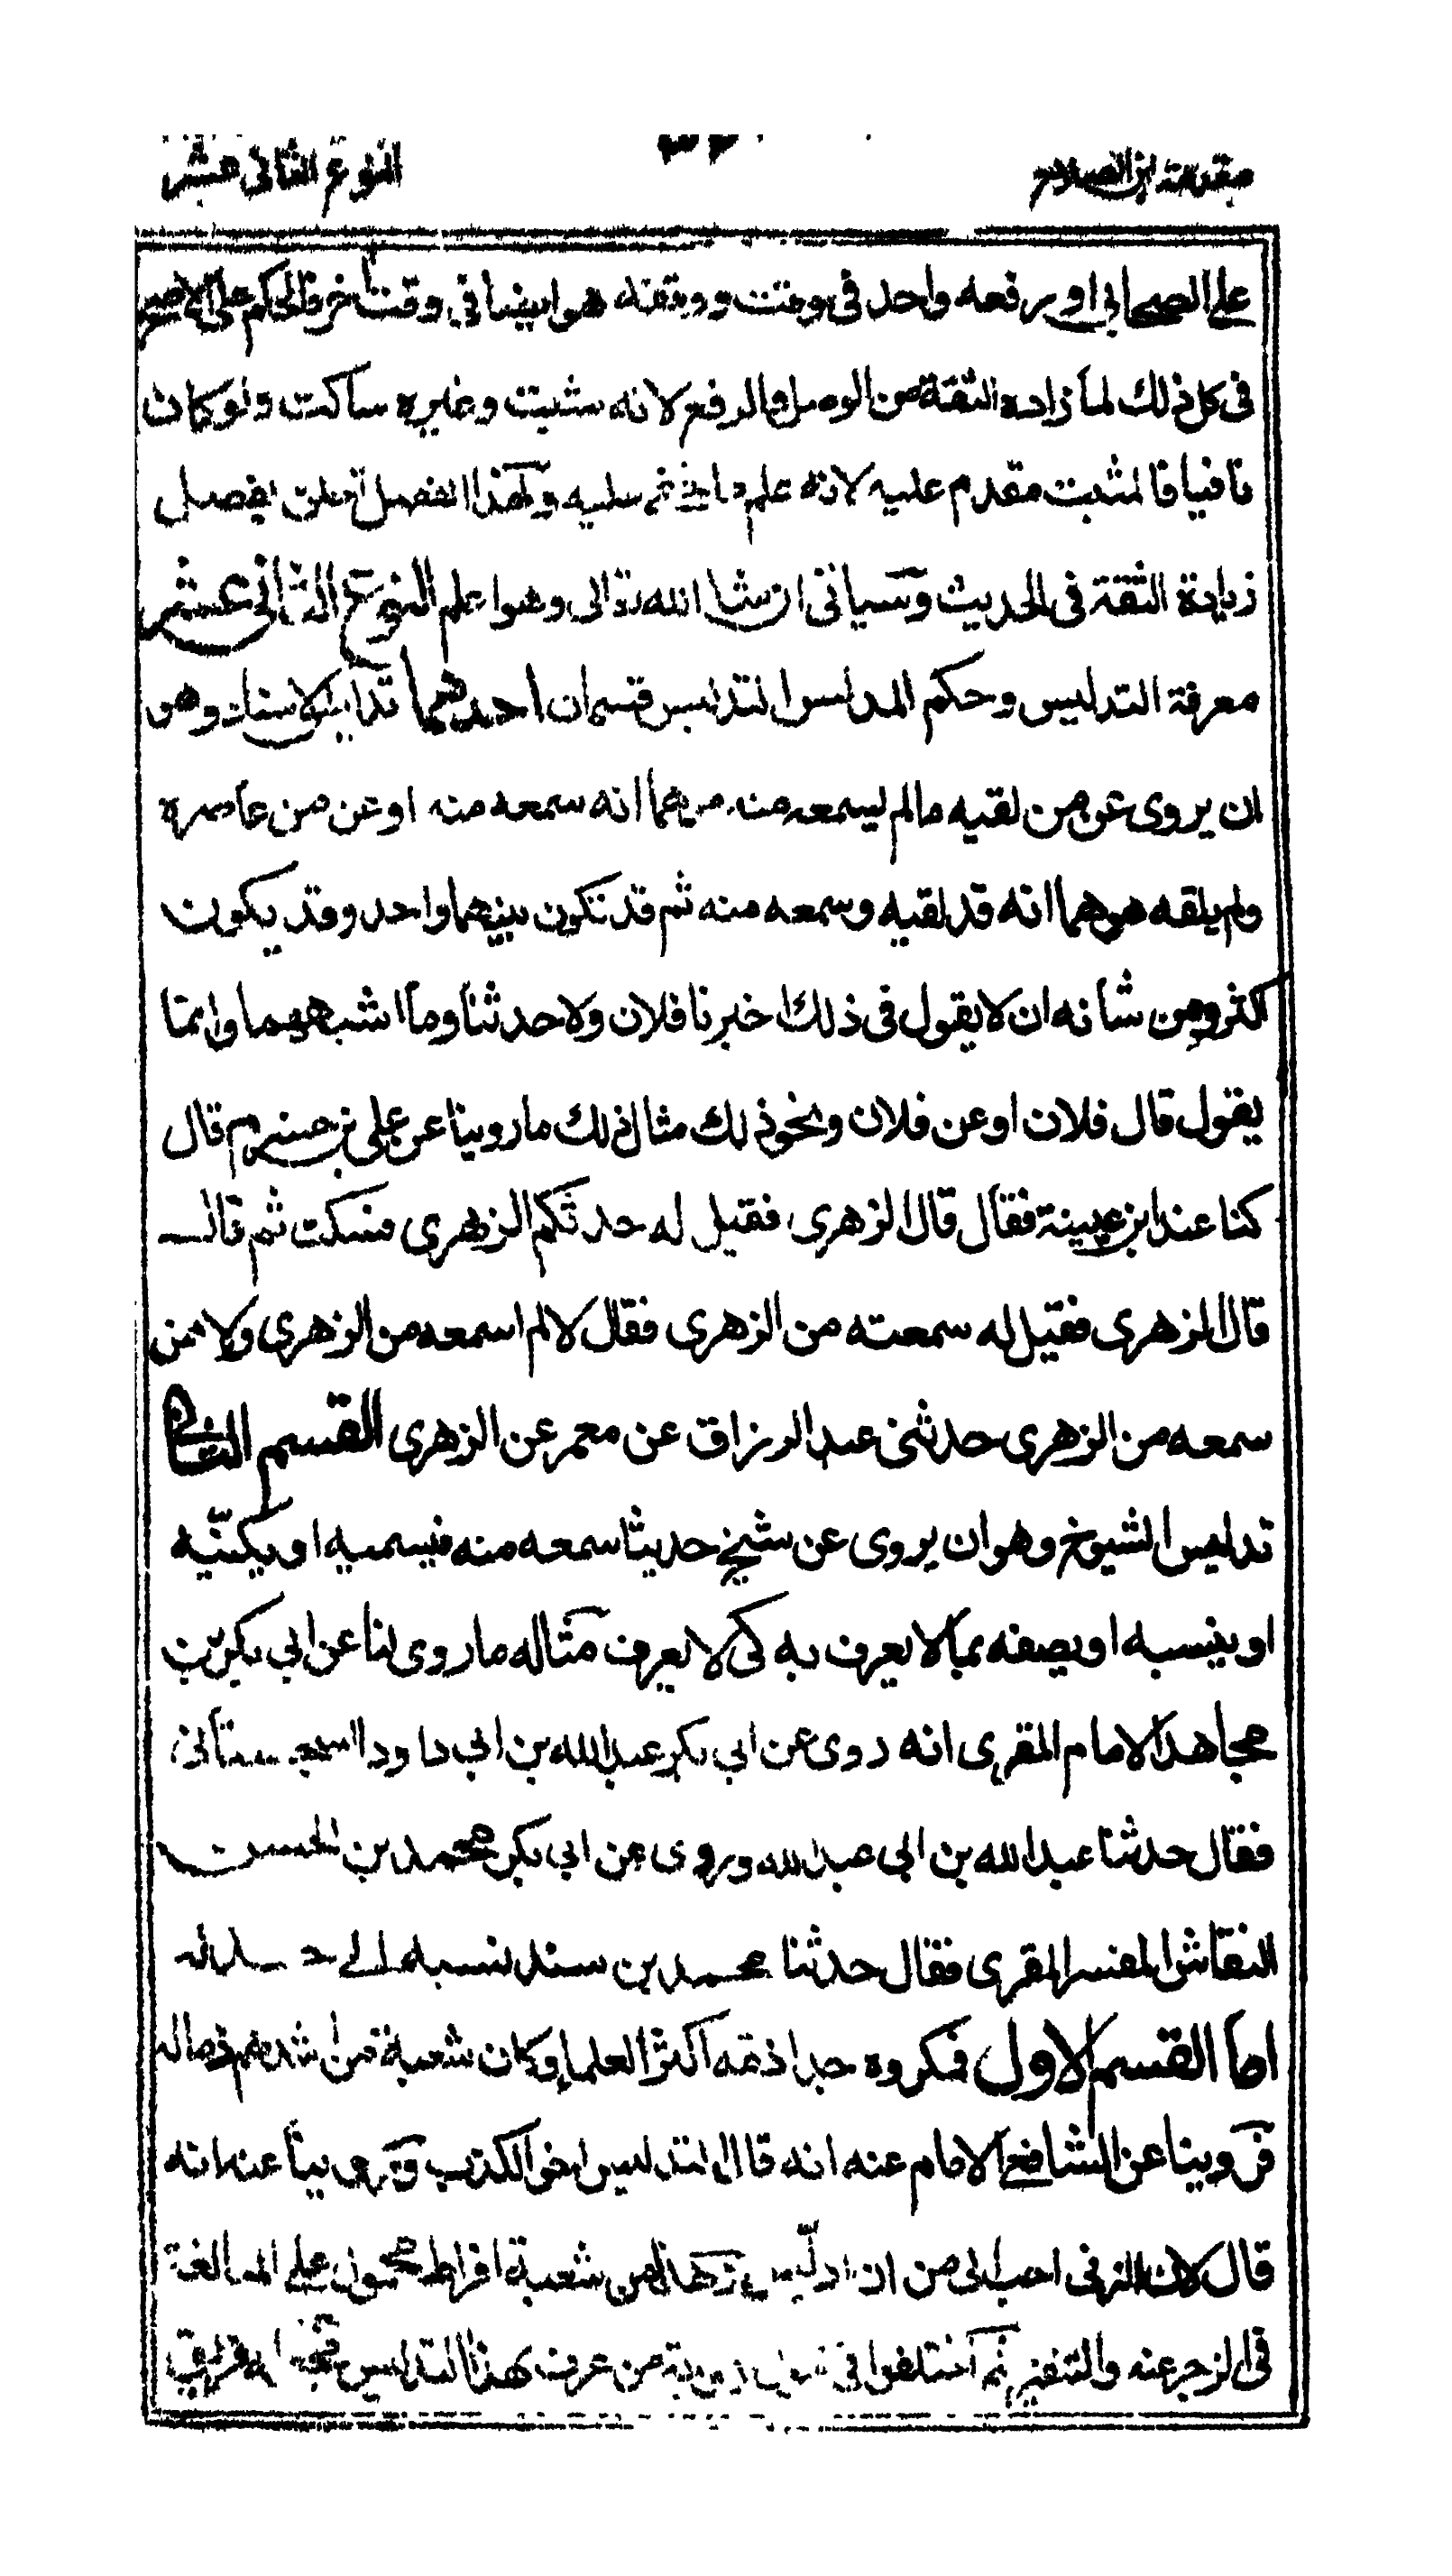 مقدمة ابن الصلاح ٣٢ النوع الثانى عشر
على الصحابي او رفعه واحد فى وقت ووقفه هو ايضا في وقت اخر فالحكم على الاصح
فى كل ذلك لما زاده الثقة من الوصل والرفع لانه مثبت وغيره ساكت ولو كان
نافيا فالمثبت مقدم عليه لانه علم ما خفي عليه ولهذا الفصل تعلق بفصل
زيادة الثقة فى الحديث وسياتى ان شا الله تعالى وهو اعلم النوع الثانى عشر
معرفة التدليس وحكم المدلس التدليس قسمان احدهما تدليس الاسناد وهو
ان يروى عن من لقيه مالم يسمعه منه موهما انه سمعه منه او عن من عاصره
ولم يلقه موهما انه قد لقيه وسمعه منه ثم قد تكون بينهما واحد وقد يكون
اكثر ومن شانه ان لا يقول فى ذلك اخبرنا فلان ولا حدثنا وما اشبههما وانما
يقول قال فلان او عن فلان ونحو ذلك مثال ذلك ما روينا عن على بن خشرم قال
كنا عند ابن عيينة فقال قال الزهرى فقيل له حدثكم الزهرى فسكت ثم قال
قال الزهرى فقيل له سمعته من الزهرى فقال لا لم اسمعه من الزهرى ولا ممن
سمعه من الزهرى حدثنى عبد الرزاق عن معمر عن الزهرى القسم الثانى
تدليس الشيوخ وهو ان يروى عن شيخ حديثا سمعه منه فيسميه او يكنّيه
او ينسبه او يصفه بما لا يعرف به كى لا يعرف مثاله ما روى لنا عن ابي بكر بن
مجاهد الامام المقرى انه روى عن ابي بكر عبد الله بن ابي داود السجستانى
فقال حدثنا عبد الله بن ابى عبد الله وروى عن ابي بكر محمد بن الحسن
النقاش المفسر المقرى فقال حدثنا محمد بن سند نسبه الى جد له
اما القسم الاول فمكروه جدا ذمه اكثر العلماء وكان شعبة من اشدهم ذما له
فروينا عن الشافعى الامام عنه انه قال التدليس اخو الكذب وروينا عنه انه
قال لان ازنى احب الى من ان ادلّس وهذا من شعبة افراط محمول على المبالغة
فى الزجر عنه والتنفير ثم اختلفوا في قبول رواية من عرف بهذا التدليس فجعله فريق